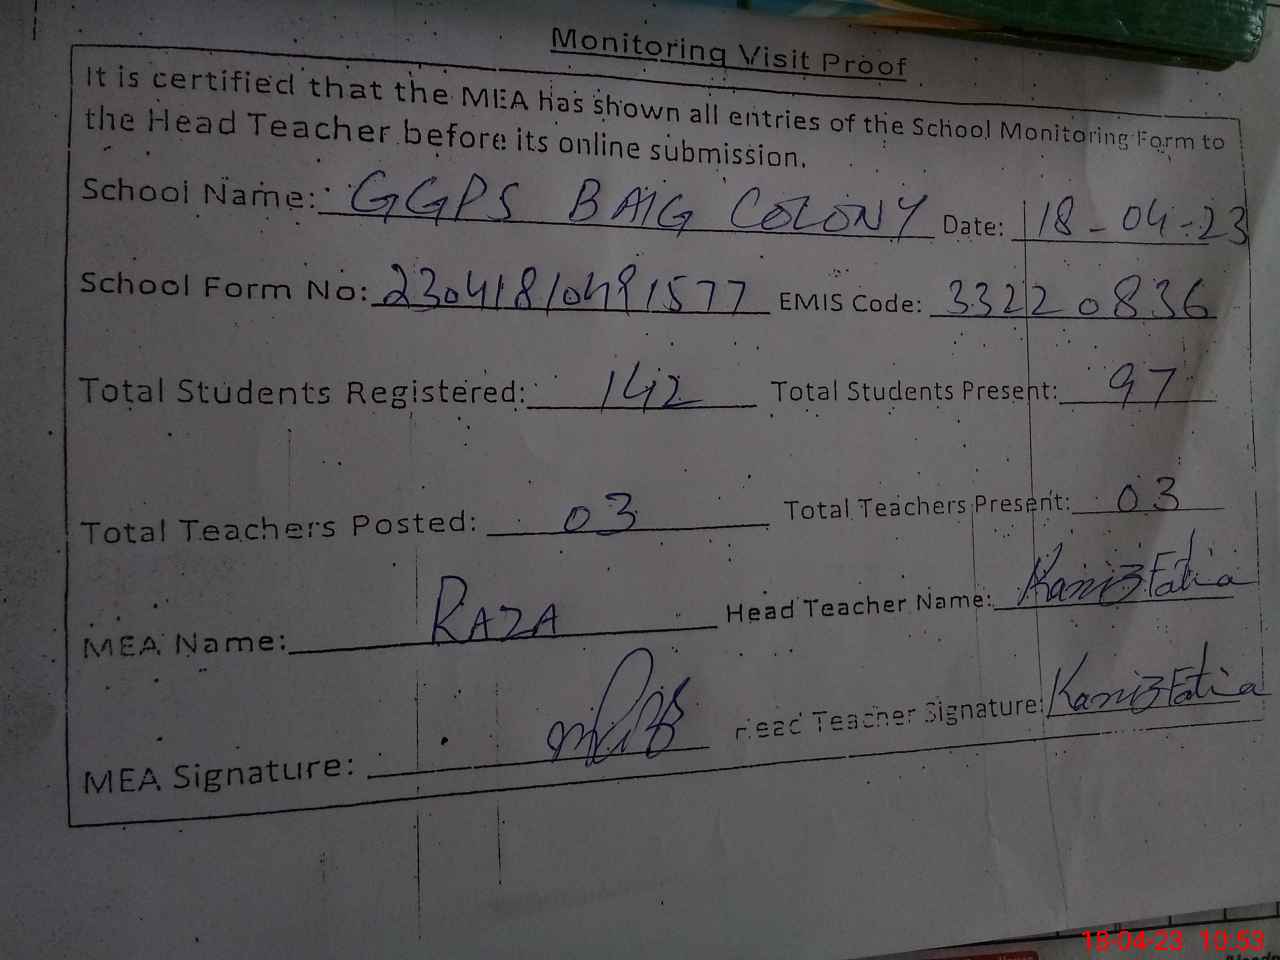 Monitoring Visit Proof
It is certified that the MEA Has shown all entries of the School Monitoring Form to
the Head Teacher before its online submission.
School Name: GGPS BAIG COLONY Date: 18-04-23
School Form No: 23041810491577 EMIS Code: 33220836
Total Students Registered: 142 Total Students Present: 97
Total Teachers Posted: 03 Total Teachers Present: 03
MEA Name: RAZA Head Teacher Name: Kaniz Fatia
MEA Signature: Head Teacher Signature: Kaniz Fatia
18-04-23 10:53